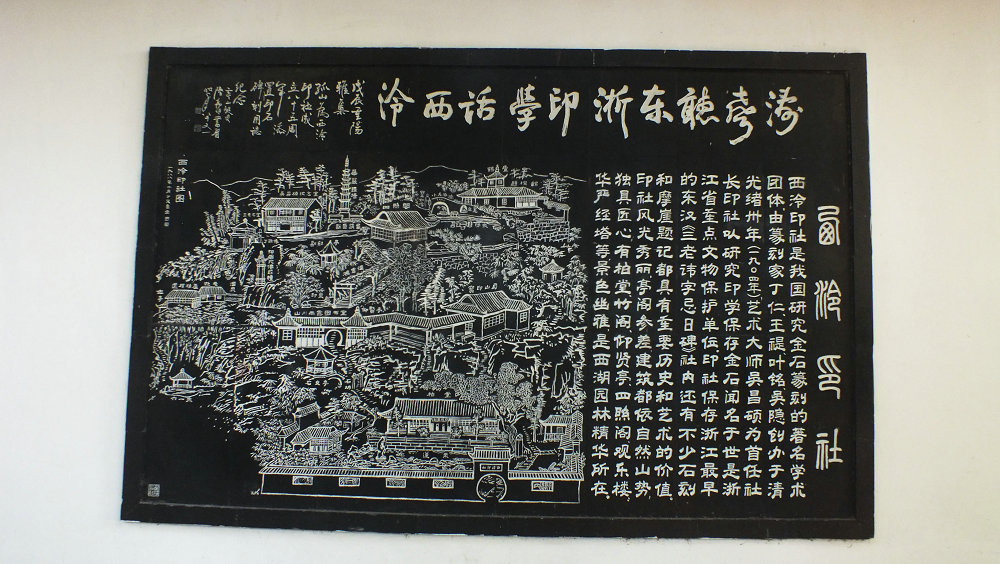 涛聲聽东浙印學話西泠
戊辰重阳
雅集
孤山为西泠
印社成
立八十五周
纪念
西泠印社
西泠印社是我国研究金石篆刻的著名学术
团体由篆刻家丁仁王禔叶铭吴隐创办于清
光绪卅年(一九〇四年)艺术大师吴昌硕为首任社
长印社以研究印学保存金石闻名于世是浙
江省重点文物保护单位印社保存浙江最早
的东汉《三老讳字忌日碑》社内还有不少石刻
和摩崖题记都具有重要历史和艺术的价值
印社风光秀丽亭阁参差建筑都依自然山势
独具匠心有柏堂竹阁仰贤亭四照阁观乐楼
华严经塔等景色幽雅是西湖园林精华所在
西泠印社图
山川雨露图书室
柏堂